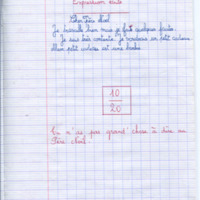 Expression écrite
Cher Père Noël
Je travaille bien mais je fais quelques fautes.
Je suis très contente. Je voudrais un petit cadeau.
Mon petit cadeau est une
10
20
Tu n'as pas grand chose à dire au
Père Noël.